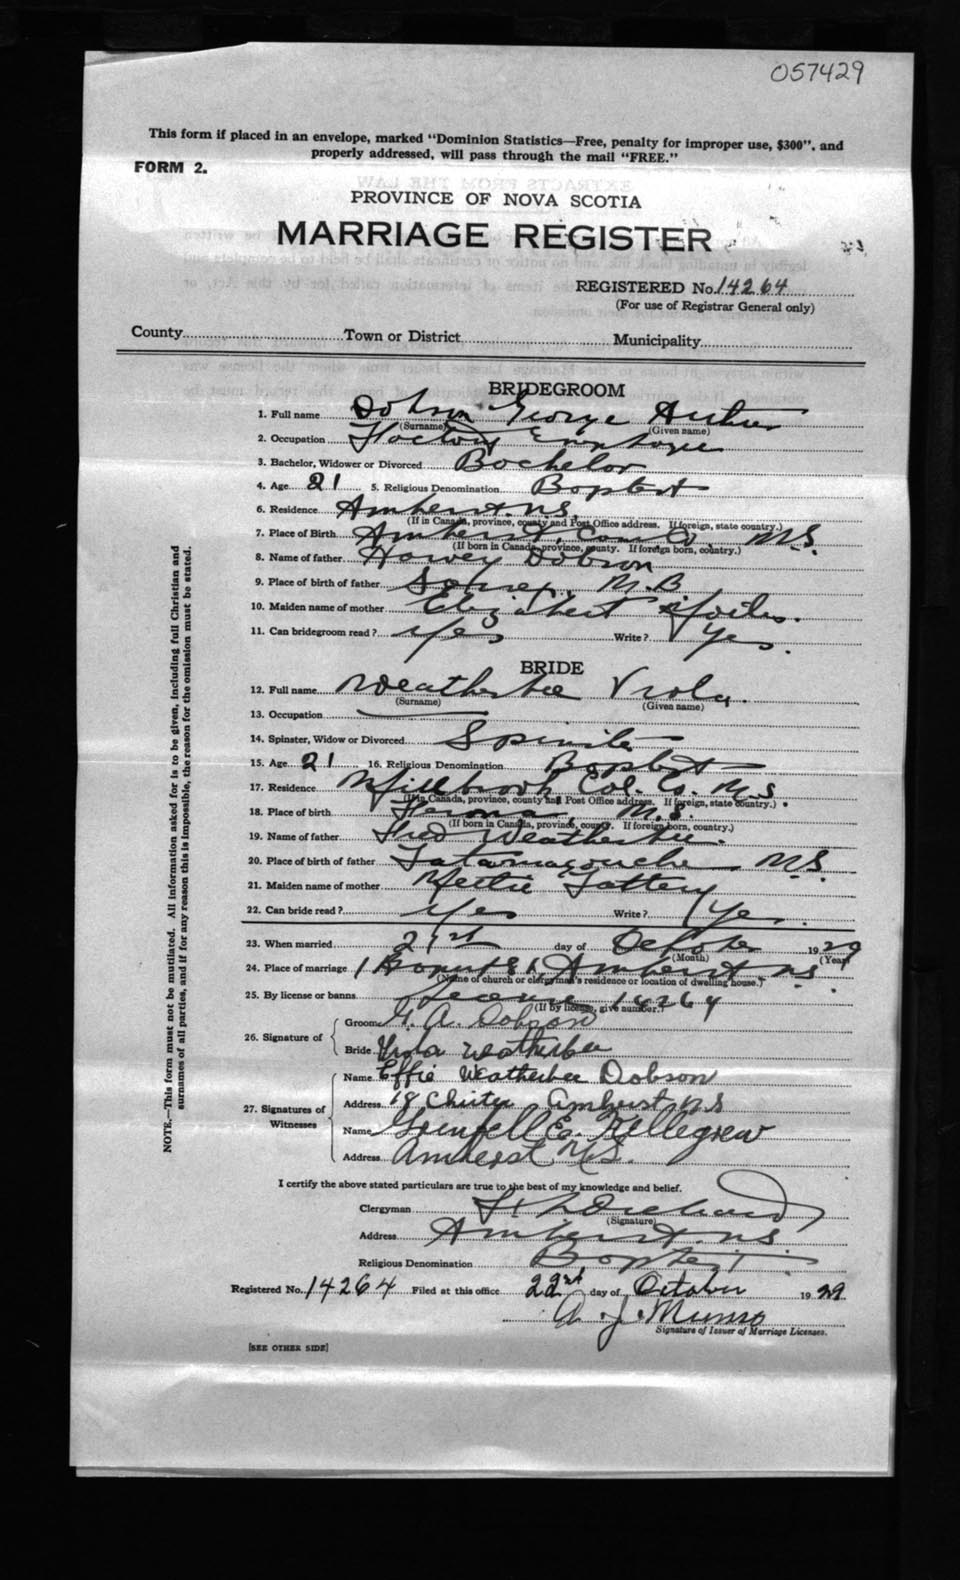 057429
This form if placed in an envelope, marked "Dominion Statistics—Free, penalty for improper use, $300", and
properly addressed, will pass through the mail "FREE."
FORM 2.
PROVINCE OF NOVA SCOTIA
MARRIAGE REGISTER
REGISTERED No. 14264
(For use of Registrar General only)
County Town or District Municipality
BRIDEGROOM
1. Full name Dobson George Arthur
(Surname) (Given name)
2. Occupation Factory Employe
3. Bachelor, Widower or Divorced Bachelor
4. Age 21 5. Religious Denomination Baptist
6. Residence Amherst N.S.
(If in Canada, province, county and Post Office address. If foreign, state country.)
7. Place of Birth Amherst, Co. N.S.
(If born in Canada, province, county. If foreign born, country.)
8. Name of father Harvey Dobson
9. Place of birth of father N.B
10. Maiden name of mother Elizabeth
11. Can bridegroom read? Yes Write? Yes.
BRIDE
12. Full name Weatherbee Viola.
(Surname) (Given name)
13. Occupation
14. Spinster, Widow or Divorced Spinster
15. Age 21 16. Religious Denomination Baptist
17. Residence Millbrook Col. Co. N.S
(If in Canada, province, county and Post Office address. If foreign, state country.)
18. Place of birth N.S.
(If born in Canada, province, county. If foreign born, country.)
19. Name of father Fred Weatherbee.
20. Place of birth of father Tatamagouche N.S.
21. Maiden name of mother Tattery
22. Can bride read? Yes Write? Yes.
23. When married 21st day of October 1929
(Month) (Year)
24. Place of marriage Amherst N.S.
(Name of church or clergyman's residence or location of dwelling house.)
25. By license or banns License 14264
(If by license, give number.)
26. Signature of
Groom G. A. Dobson
Bride Viola Weatherbee
27. Signatures of Witnesses
Name Effie Weatherbee Dobson
Address 18 Amherst N S
Name Grenfell E. Kellegrew
Address Amherst N.S.
I certify the above stated particulars are true to the best of my knowledge and belief.
Clergyman
(Signature)
Address Amherst N.S.
Religious Denomination Baptist
Registered No. 14264 Filed at this office 22nd day of October 1929
A. J. Munro
Signature of Issuer of Marriage Licenses.
[SEE OTHER SIDE]
NOTE.—This form must not be mutilated. All information asked for is to be given, including full Christian and
surnames of all parties, and if for any reason this is impossible, the reason for the omission must be stated.